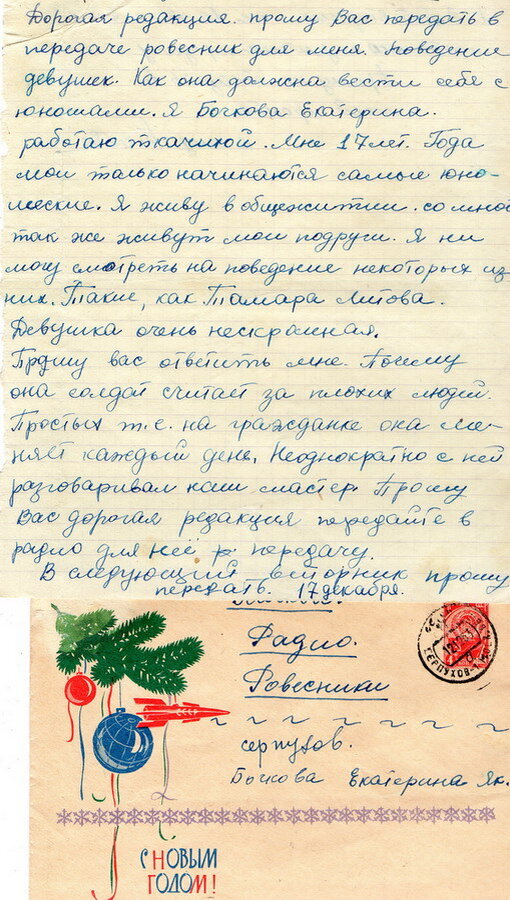 Дорогая редакция. прошу Вас передать в
передаче ровесник для меня. поведение
девушек. Как она должна вести себя с
юношами. Я Бочкова Екатерина.
работаю ткачихой. Мне 17 лет. Года
мои только начинаются самые юно-
шеские. Я живу в общежитии. со мной
так же живут мои подруги. Я ни
могу смотреть на поведение некоторых из
них. Такие, как Тамара Литова.
Девушка очень нескромная.
Прошу вас ответить мне. Почему
она солдат считает за плохих людей.
Простых т.е. на гражданке она ме-
няет каждый день. Неоднократно с ней
разговаривал наш мастер. Прошу
Вас дорогая редакция передайте в
радио для неё р. передачу.
В следующий вторник прошу
передать. 17 декабря.
Радио.
Ровесники
серпухов.
Бочкова Екатерина Як.
СЕРПУХОВ
С НОВЫМ
ГОДОМ!